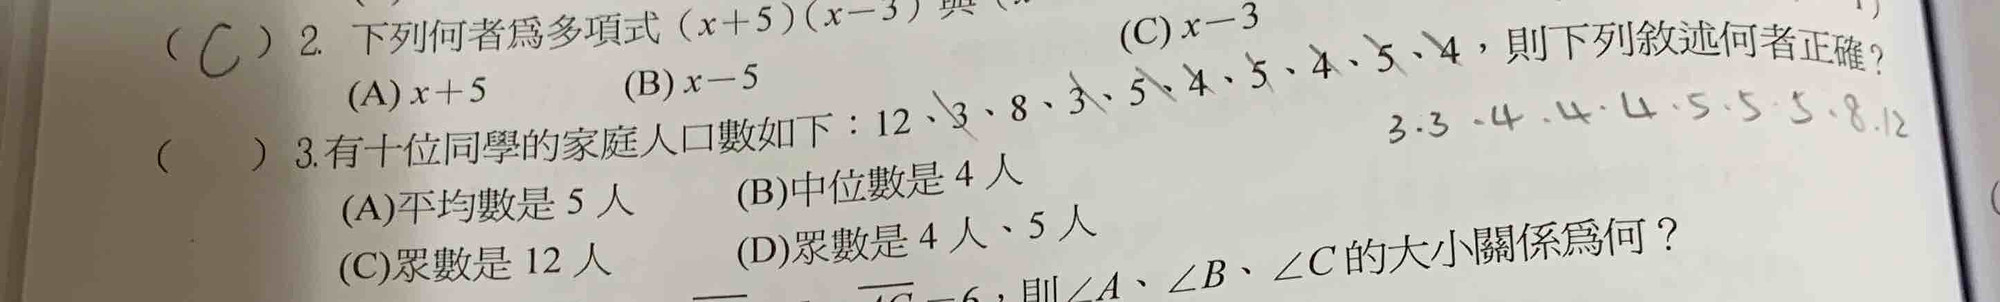 ( C ) 2. 下列何者爲多項式 (x+5)(x-3) 與
(A) x+5 (B) x-5 (C) x-3
( ) 3.有十位同學的家庭人口數如下：12、3、8、3、5、4、5、4、5、4，則下列敘述何者正確？
3.3.4.4.4.5.5.5.8.12
(A)平均數是 5 人 (B)中位數是 4 人
(C)眾數是 12 人 (D)眾數是 4 人、5 人
則∠A、∠B、∠C的大小關係爲何？